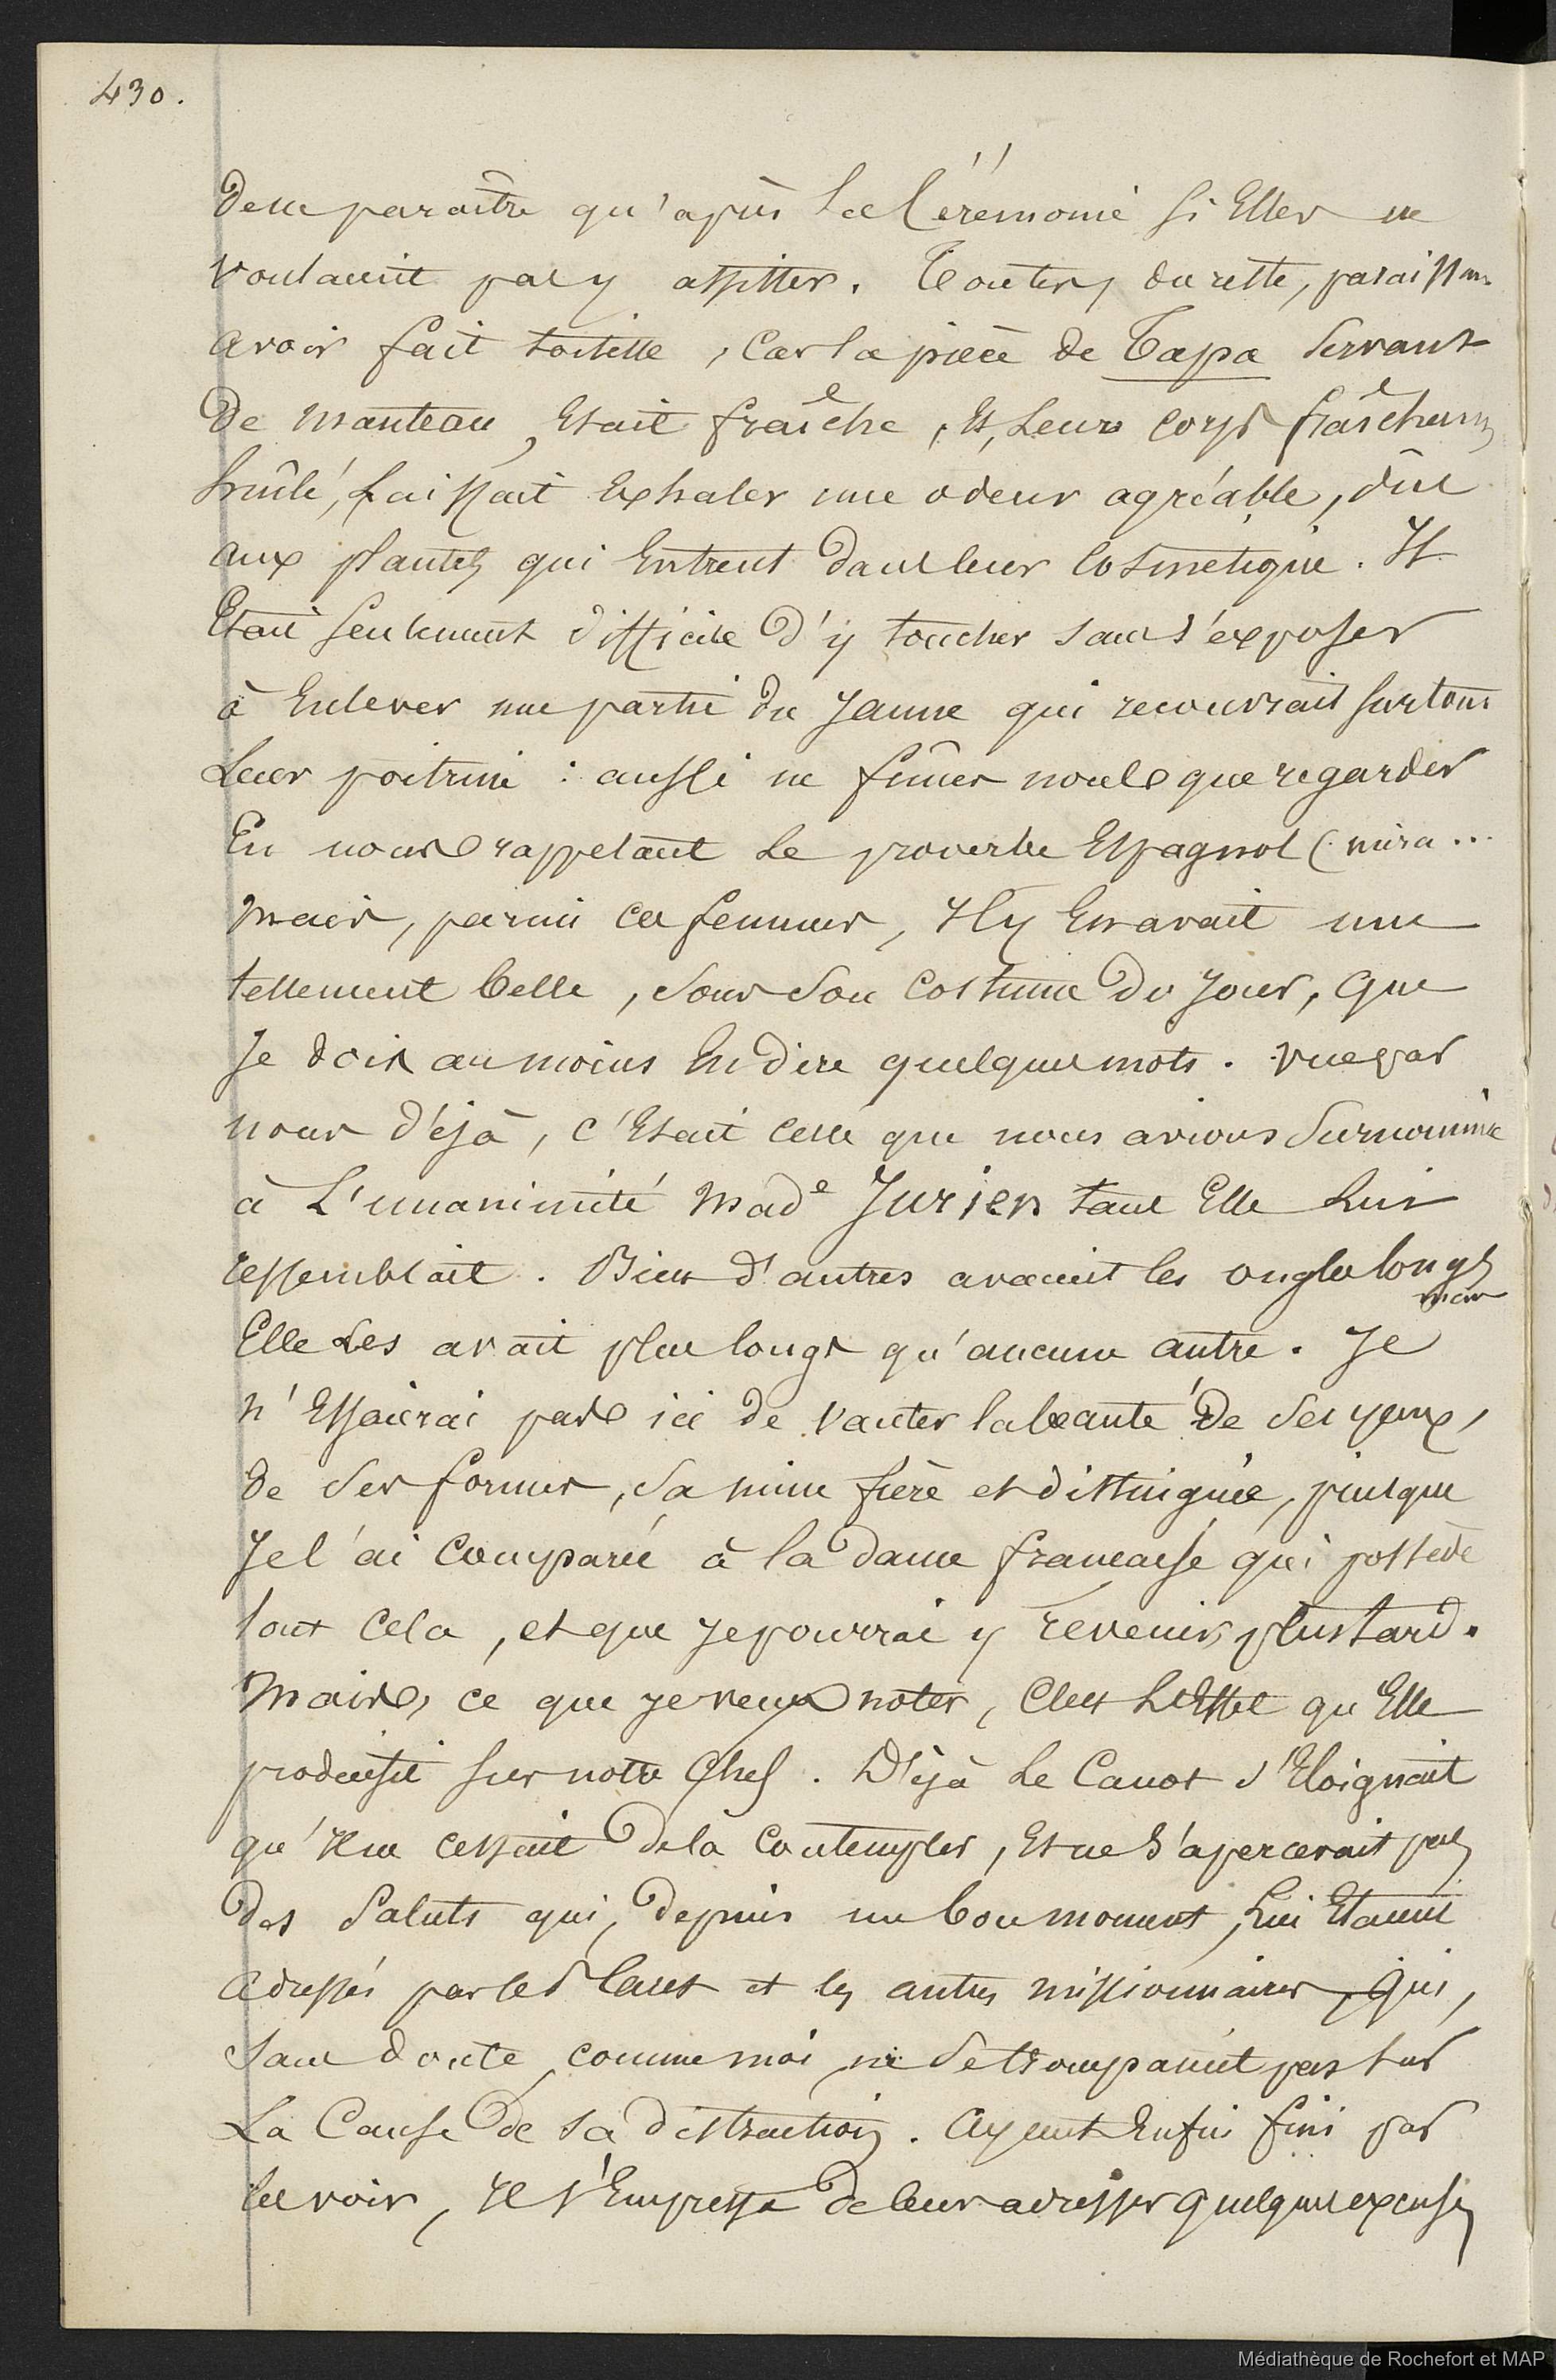 430.
de ne paraître qu'après la Cérémonie si Elles ne
voulaient pas y assister. Toutes, du reste, paraissaient
avoir fait toilette, Car la pièce de Tapa servant
de manteau, Etait fraîche, Et, Leurs corps fraîchement
huilé, laissait Exhaler une odeur agréable, dûe
aux plantes qui Entrent dans leur cosmétique. Il
Etait seulement difficile d'y toucher sans s'exposer
à Enlever une partie du Jaune qui recouvrait surtout
Leur poitrine : aussi ne fîmes nous que regarder
En nous rappelant Le proverbe Espagnol (mira...
Mais, parmi ces femmes, Il y En avait une
tellement belle, sous son costume du jour, que
Je dois au moins En dire quelques mots. Vue par
nous déjà, c'Etait celle que nous avions surnommée
à L'unanimité Made Jurien tant Elle Lui
ressemblait. Bien d'autres avaient les ongles longs
mais
Elle Les avait plus longs qu'aucune autre. Je
n'Essaierai pas ici de vanter la beauté de ses yeux,
de ses formes, sa mine fière et distinguée, puisque
Je l'ai Comparée à la dame française qui possède
tout cela, et que je pourrai y revenir plus tard.
Mais, ce que je veux noter, C'est L'Effet qu'Elle
produisit sur notre Chef. Déjà Le Canot s'Eloignait
qu'Il ne cessait de la Contempler, Et ne s'apercevait pas
des Saluts qui, depuis un bon moment, Lui Etaient
adressés par les et les autres missionnaires, qui,
sans doute, comme moi, ne se trompaient pas sur
La Cause de sa distraction. Ayant Enfin fini par
les voir, Il s'Empressa de leur adresser quelques excuses
Médiathèque de Rochefort et MAP